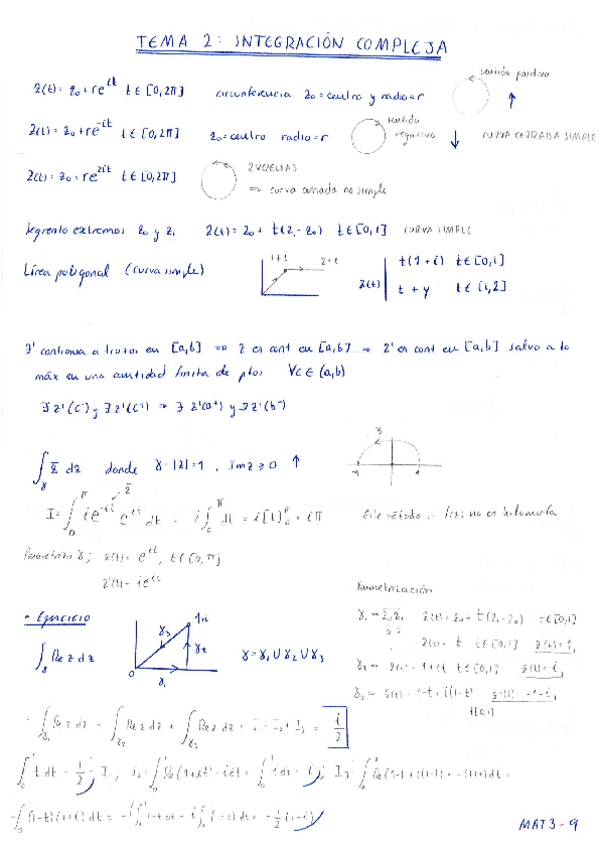 TEMA 2: INTEGRACIÓN COMPLEJA
z(t) = z₀ + re^{it} t∈[0,2π] circunferencia z₀ = centro y radio = r sentido positivo ↑
z(t) = z₀ + re^{-it} t∈[0,2π] z₀ = centro radio = r sentido negativo ↓ CURVA CERRADA SIMPLE
z(t) = z₀ + re^{2it} t∈[0,2π] 2 VUELTAS
⇒ curva cerrada no simple
Segmento extremos z₀ y z₁ z(t) = z₀ + t(z₁-z₀) t∈[0,1] CURVA SIMPLE
Línea poligonal (curva simple) 1+i 2+i z(t) | t(1+i) t∈[0,1]
t + y t∈[1,2]
z' continua a trozos en [a,b] ⇒ z es cont en [a,b] ⇒ z' es cont en [a,b] salvo a lo
máx en una cantidad finita de ptos ∀c∈(a,b)
∃z'(c⁻) y ∃z'(c⁺) ⇒ ∃z'(a⁺) y ∃z'(b⁻)
∫_γ z̄ dz donde γ: |z|=1, Im z ≥ 0 ↑ -1 1
I = ∫₀^π ie^{-it} e^{it} dt = i∫₀^π dt = i[t]₀^π = iπ Este método no es holomorfa
Parametrizo γ; z(t) = e^{it}, t∈[0,π]
z'(t) = ie^{it}
Parametrización
• Ejercicio
∫_γ Re z dz 0 γ₁ γ₂ γ₃ 1+i γ = γ₁ ∪ γ₂ ∪ γ₃
γ₁ = z₀z₁ z(t) = z₀ + t(z₁-z₀) t∈[0,1]
z(t) = t t∈[0,1] z'(t) = 1,
γ₂ = z(t) = 1+it t∈[0,1] z'(t) = i,
γ₃ = z(t) = 1-t + i(1-t) z'(t) = -1-i,
t∈[0,1]
= ∫_γ₁ Re z dz = ∫_γ₂ Re z dz + ∫_γ₃ Re z dz = I₁ + I₂ + I₃ = i/2
∫₀¹ t dt = 1/2 = I₁ ; I₂ = ∫₀¹ Re(1+it) · i dt = ∫₀¹ 1 dt = i ; I₃ = ∫₀¹ Re(1-t + i(1-t)) · -(1+i) dt =
-∫₀¹ (1-t)(1+i) dt = = -1/2(1+i)
MAT3-9